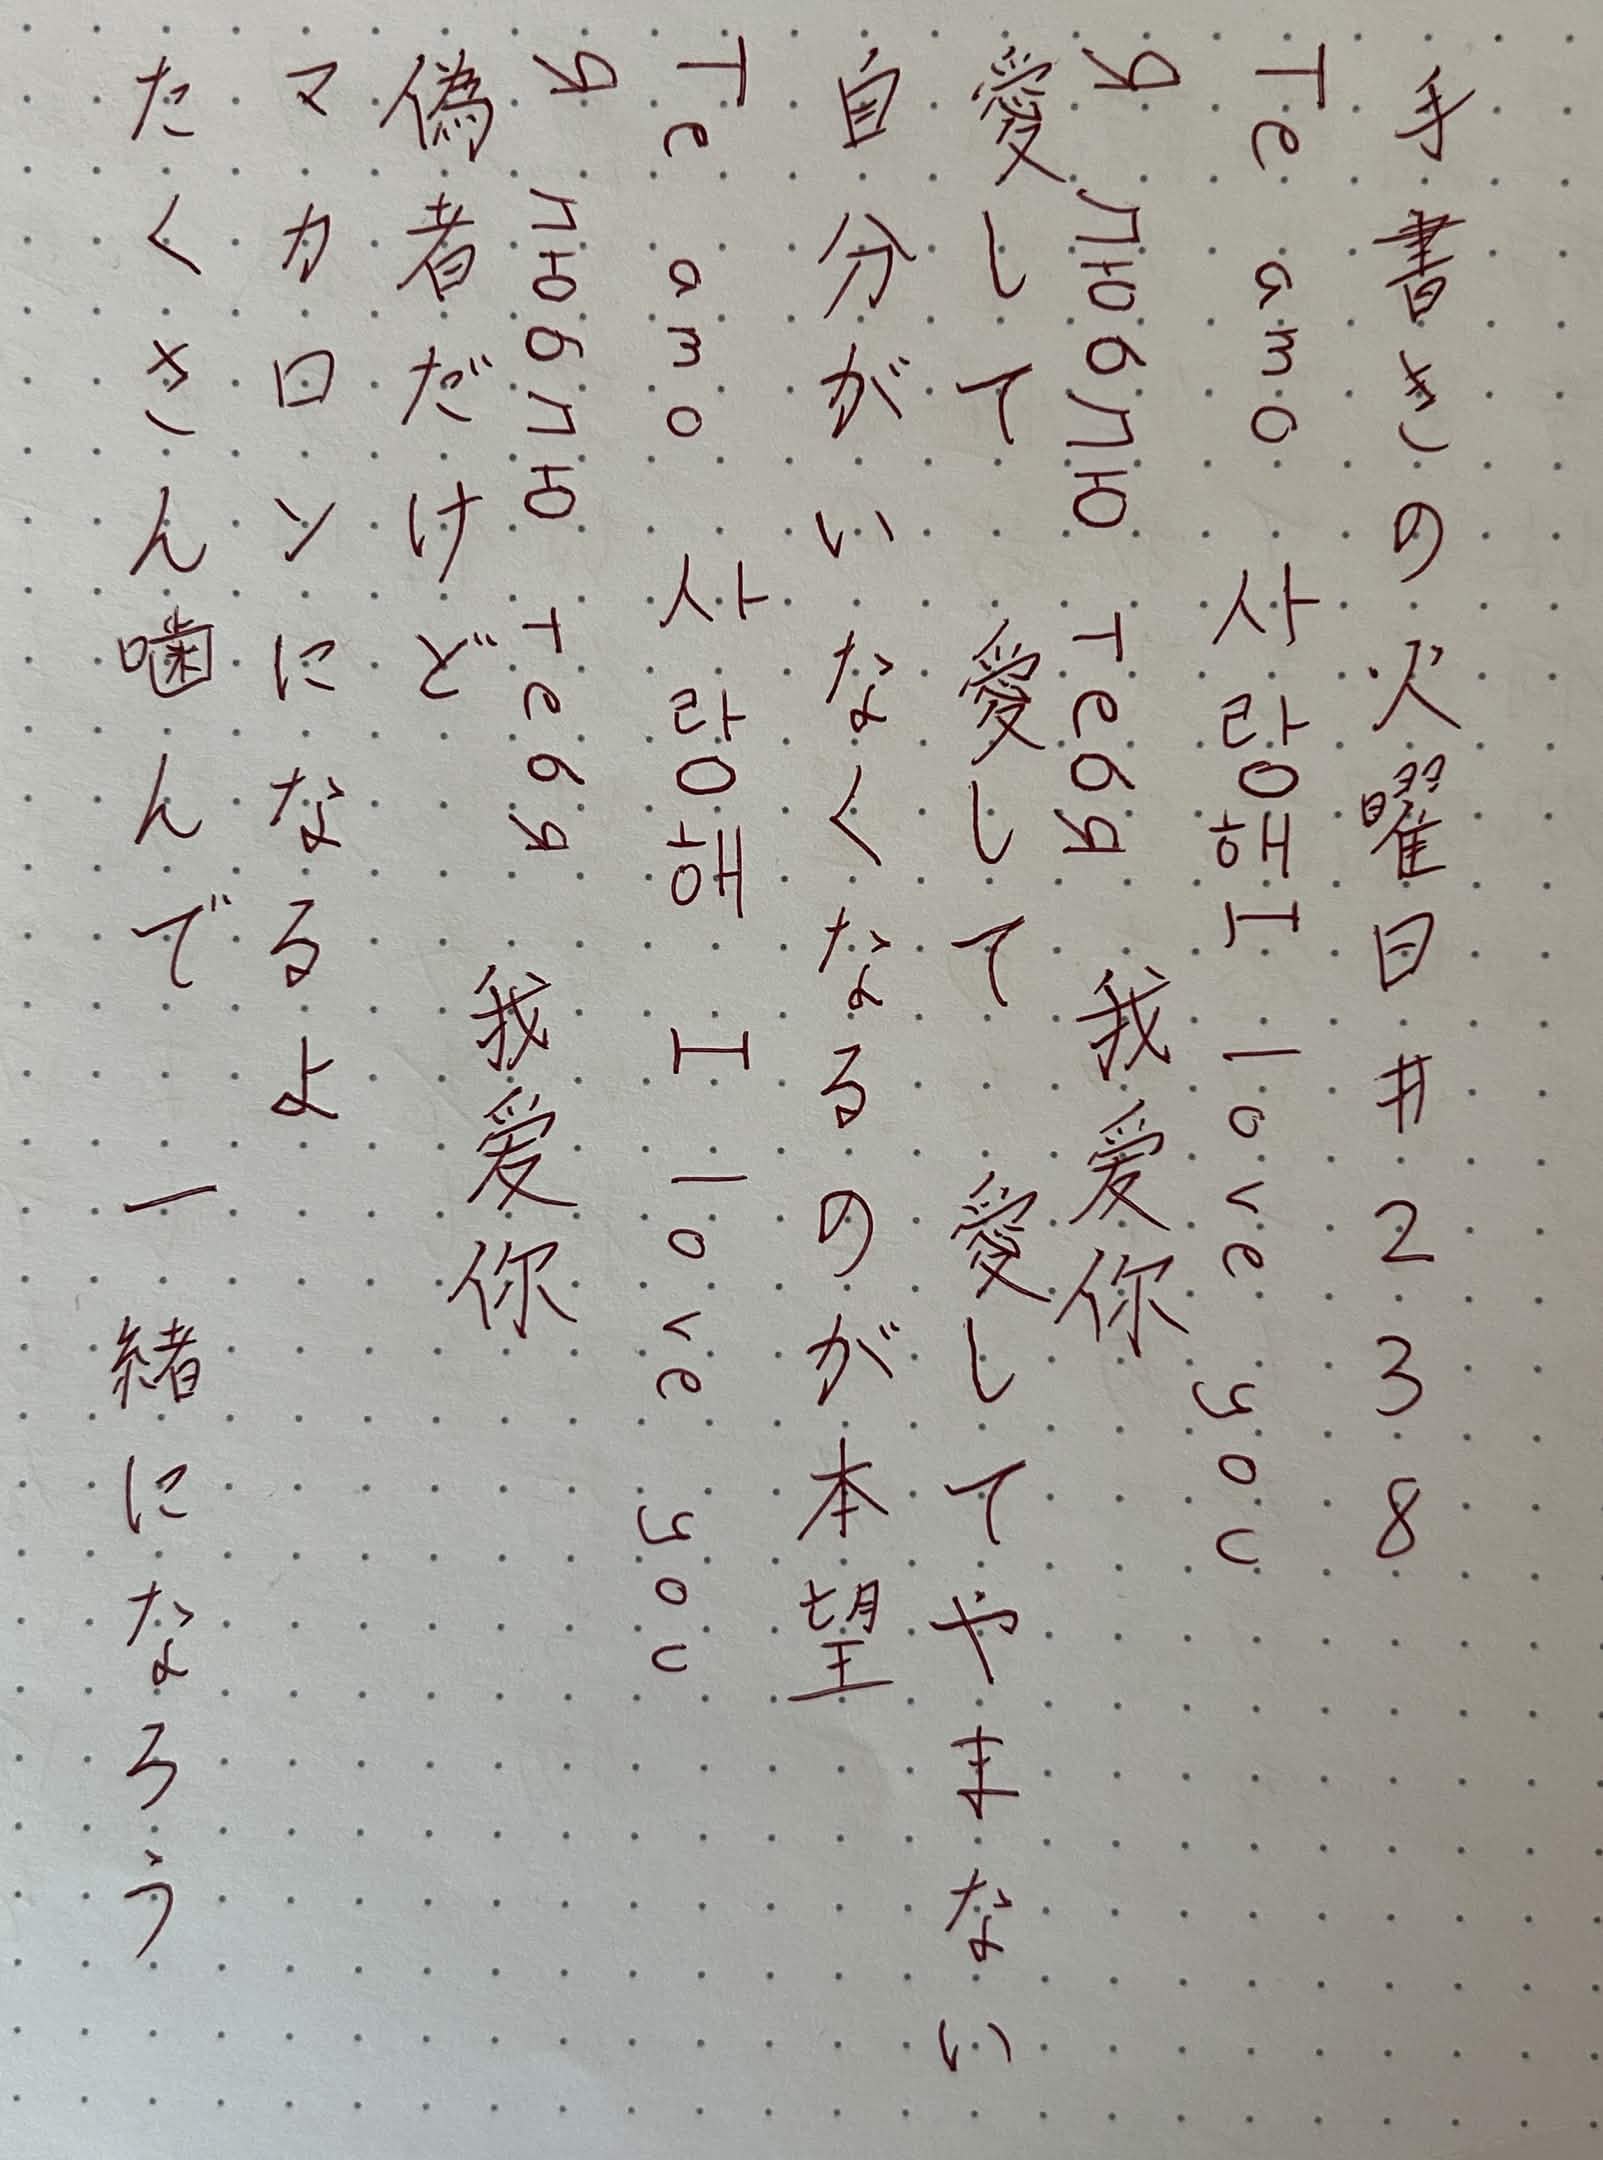 手書きの火曜日#238
Te amo 사랑해 I love you
Я люблю тебя 我爱你
愛して 愛して 愛してやまない
自分がいなくなるのが本望
Te amo 사랑해 I love you
Я люблю тебя 我爱你
偽者だけど
マカロンになるよ
たくさん噛んで 一緒になろう